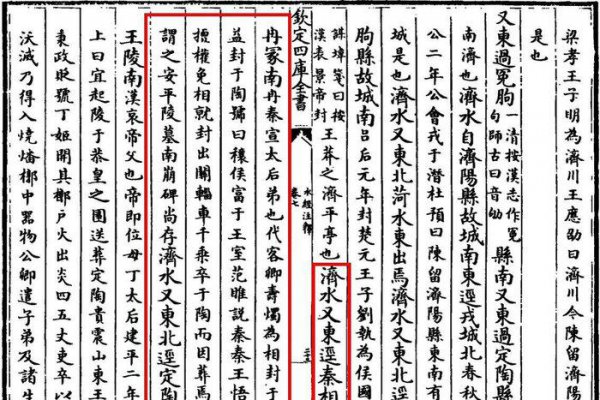 梁孝王子明為濟川王應劭曰濟川今陳留濟陽
是也
又東過冤朐一清按漢志作冤句師古曰音劬縣南又東過定陶縣
南濟也濟水自濟陽縣故城南東逕戎城北春秋
公二年公會戎于潛杜預曰陳留濟陽縣東南有
城是也濟水又東北菏水東出焉濟水又東北逕
朐縣故城南呂后元年封楚元王子劉執為侯國
誅埠箋曰按漢表景帝封王莽之濟平亭也濟水又東逕秦相
欽定四庫全書
水經注釋
卷七
冉冢南冉秦宣太后弟也代客卿壽燭為相封于
益封于陶號曰穰侯富于王室范雎說秦秦王悟
擅權免相就封出關輜車千乘卒于陶而因葬焉
謂之安平陵墓南崩碑尚存濟水又東北逕定陶
王陵南漢哀帝父也帝即位母丁太后建平二年
上曰宜起陵于恭皇之園送葬定陶貴震山東王
秉政貶號丁姬開其槨戶火出炎四五丈吏卒以
沃滅乃得入燒燔槨中器物公卿遣子弟及諸生